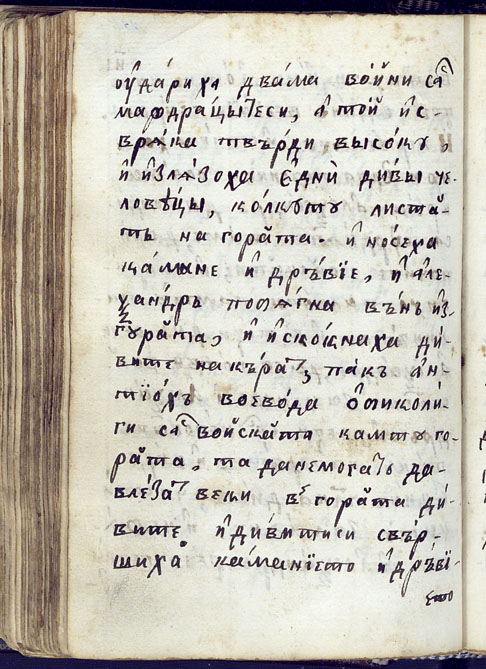 оу҆да́риха два́ма во́йни са҆с
мафдраци́теси, а҆ то́й и҆с-
врѧ́ка твъ́рди высо́ку,
и҆ и҆злѧ́зоха є҆дни̏ ди́вы че-
лове́цы, ко́лкуту листа̏-
тъ на гора̏та. и҆ но́сеха
ка́мане и҆ дръ́вїе, и҆ а҆ле-
ѯандръ поѧ́гна въ́нъ и҆з
гура̏та, и҆ и҆скокнаха ди́-
вите накъра̏т, па́къ а҆н-
тїо́хъ воево́да ѡ҆биколи́-
ги са҆с воиска̏та камту го-
ра̏та, та данемога̏тъ да-
влѣ́за̏т веки в гора̏та ди́-
вите и҆ди́витиси свъ́р-
шиха̏ ка́манїето и҆дръ́вї-
ето